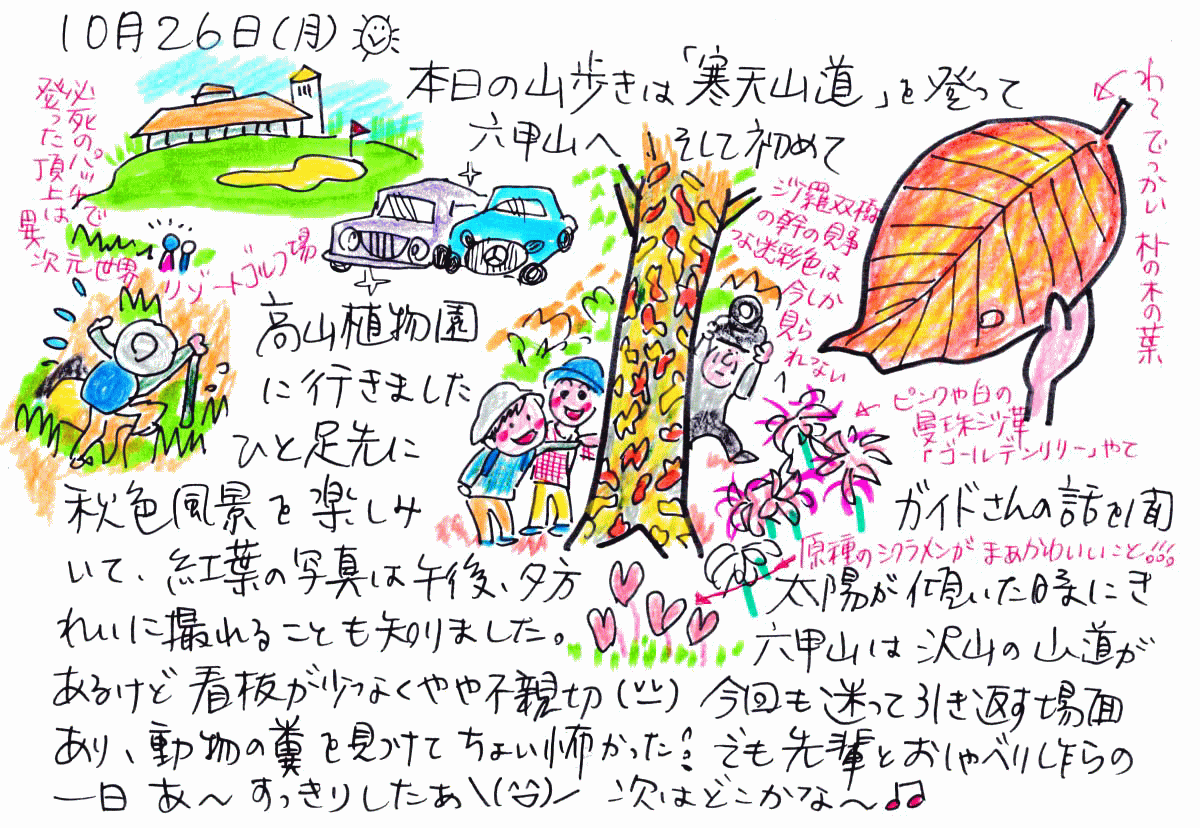 10月26日(月)
本日の山歩きは「寒天山道」を登って
六甲山へ そして初めて
必死のパッチで
登った頂上は
異次元世界 リゾートゴルフ場
わてでっかい 朴の木の葉
沙羅双樹
の幹の見事
な迷彩色は
今しか
見ら
れない
高山植物園
に行きました
ピンクや白の
曼珠沙華
「ゴールデンリリー」やて
ひと足先に
秋色風景を楽しみ ガイドさんの話を聞
原種のシクラメンが まぁかわいいこと
いて、紅葉の写真は午後、夕方 太陽が傾いた時にき
れいに撮れることも知りました。 六甲山は沢山の山道が
あるけど看板が少なくやや不親切 今回も迷って引き返す場面
あり、動物の糞を見つけてちょい怖かった! でも先輩とおしゃべりし乍らの
一日 あ〜すっきりしたぁ\(^^)/ 次はどこかな〜♫